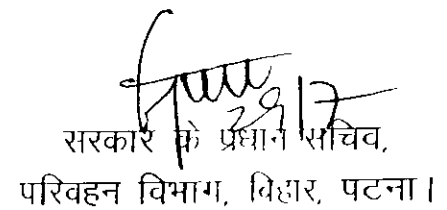 29/7
सरकार के प्रधान सचिव,
परिवहन विभाग, बिहार, पटना।